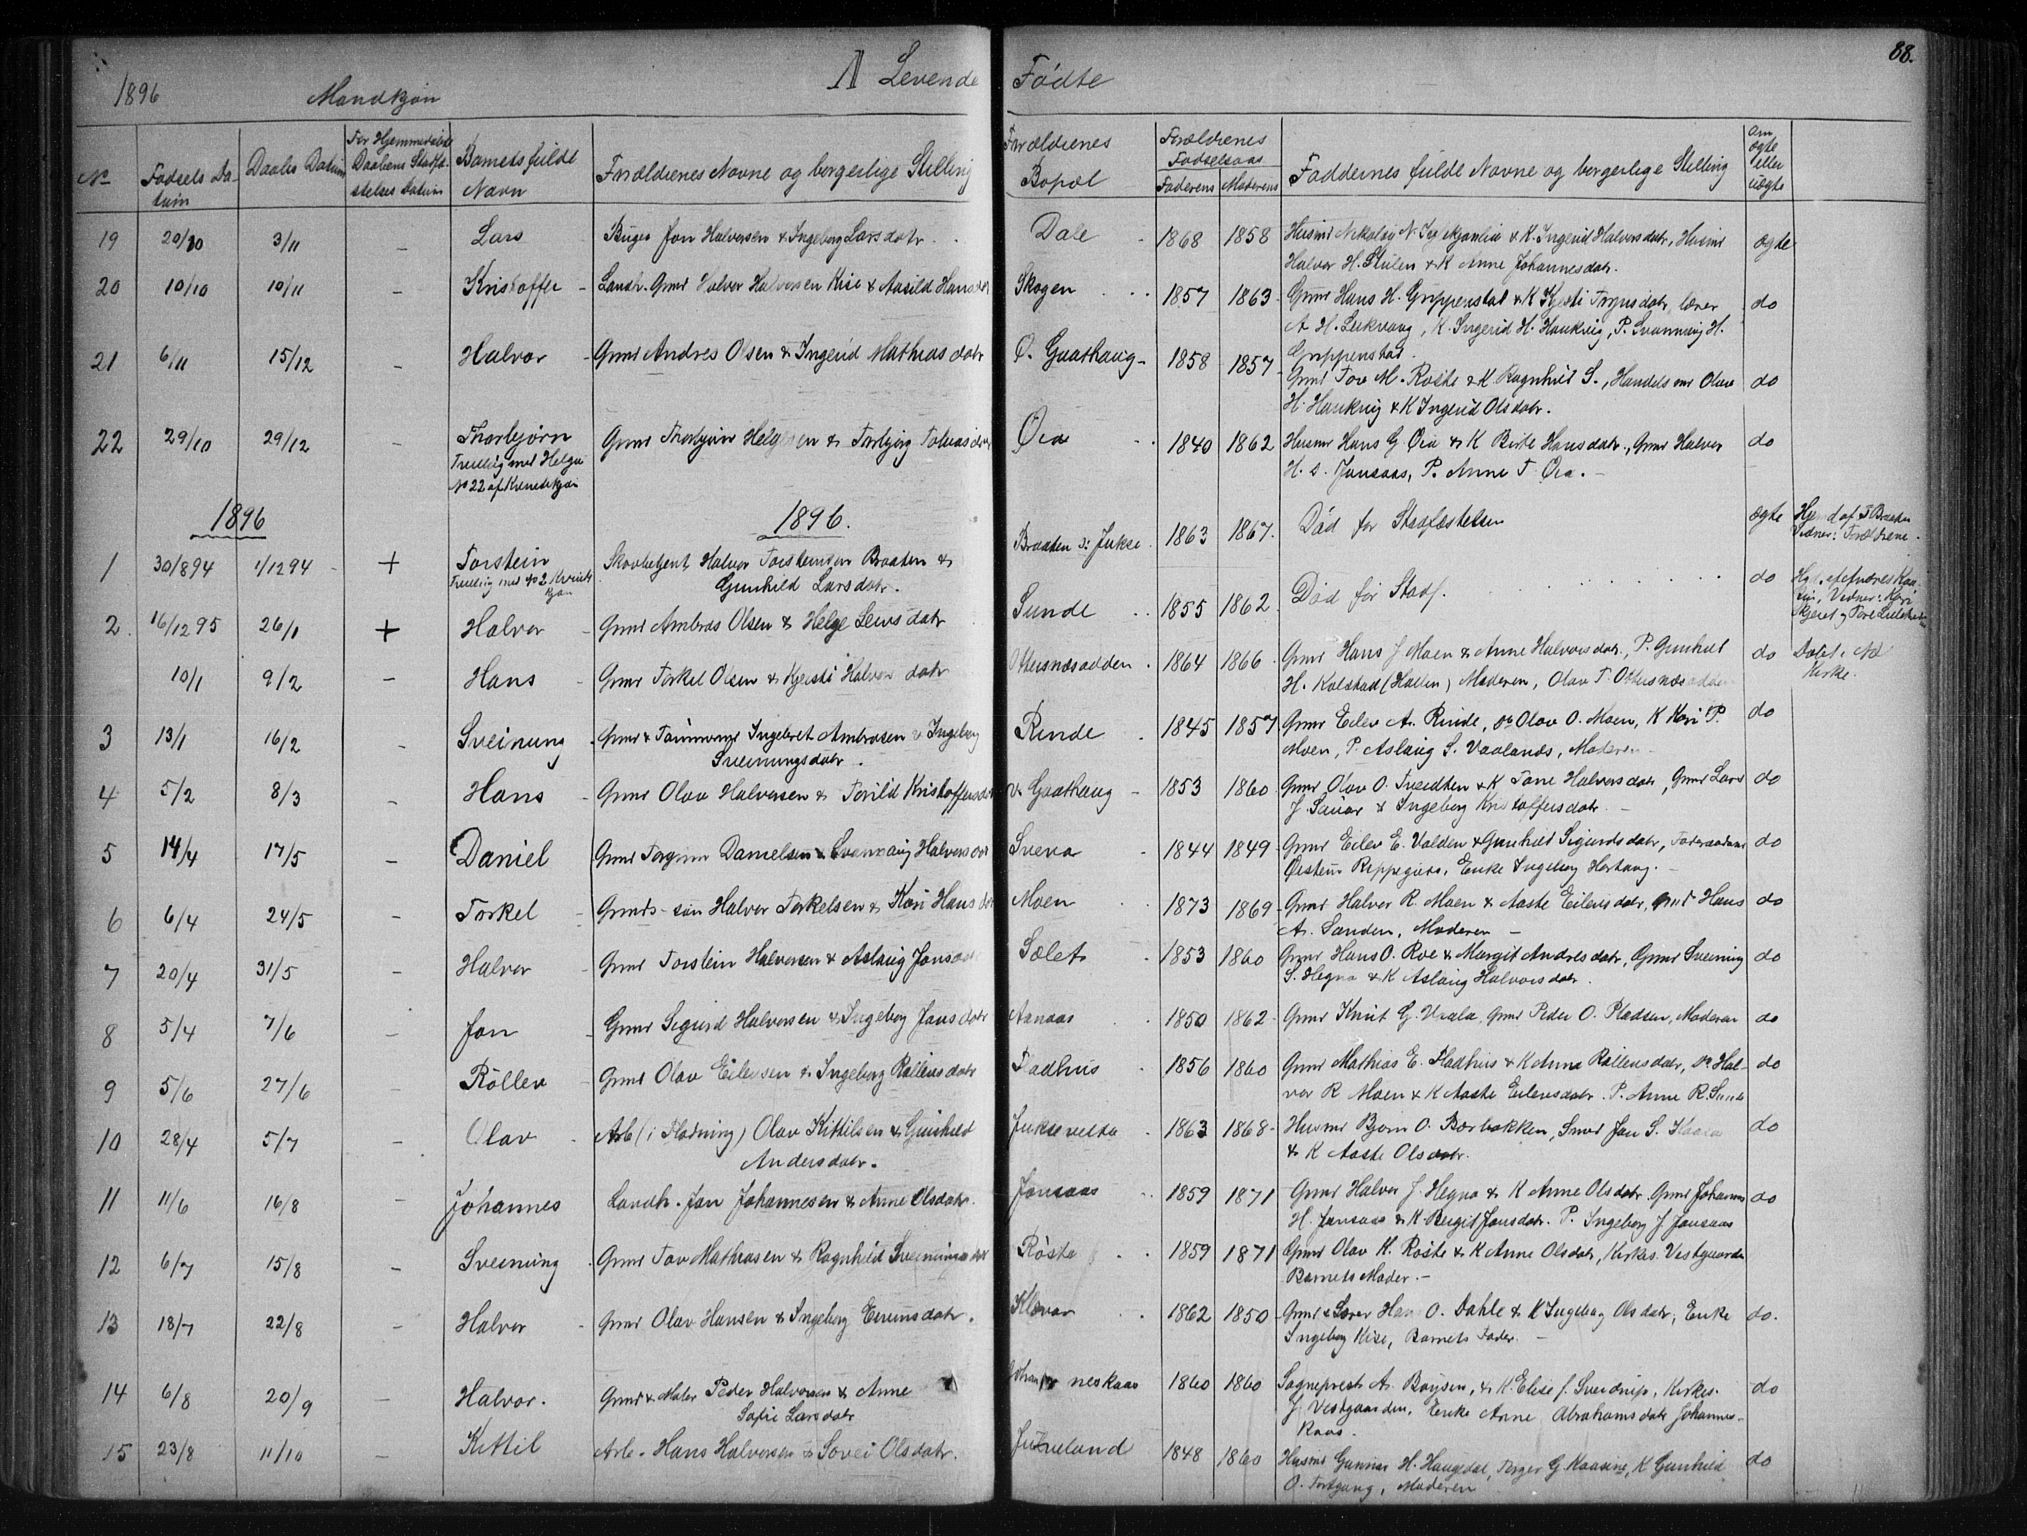 88.
1896 Mandkjøn A Levende Fødte
No Fødsels Datum Daabs Datum For Hjemmedøbte Daabens Stadfæstelses Datum Barnets fulde Navn Forældrenes Navne og borgerlige Stilling Forældrenes Bopæl Forældrenes Fødselsaar Faderens Moderens Faddernes fulde Navne og borgerlige Stilling Om ægte eller uægte
19 20/10 3/11 - Lars Jon Halvorsen & Ingeborg Larsdatr. Dale 1868 1858 Husmd Nikolay N. & K. Ingerid Halvorsdatr, Husmd ægte
Halvor H. Stulen & K Anne Johannesdatr.
20 10/10 10/11 - Kristoffer Landh. Gmd Halvor Halvorsen Kise & Aasild Hansdatr Skogen 1857 1863 Gmd Hans H. Grippenstad & K Kjersti, lærer do
A H. Leikvang, K. Ingerid H. Haukvig, P. Svannaug H.
Grippenstad.
21 6/11 15/12 - Halvor Gmd Andres Olsen & Ingerid Mathiasdatr Ø. Gaathaug 1858 1857 Gmd Tov M. Røste & K Ragnhild S., Handelsmd Olav do
H. Haukvig & K Ingerid Olsdatr.
22 29/10 29/12 - Thorbjørn Gmd Thorbjørn Helgesen & Torbjørg Øra 1840 1862 Husmd Hans G. Øra & K Birte Hansdatr., Gmd Halvor do
Tvilling med Helga H. s. Jonsaas, P. Anne T. Øra. -
No 22 af Kvindekjøn
1896 1896.
1 30/8 94 1/12 94 + Torstein Skovbetjent Halvor Torstensen Braaten & Braaten Jukse 1863 1867 Død før Stadfæstelsen ægte Hjmd af T Braaten
Tvilling med No 2 Kvindekjøn Gunhild Larsdatr. Vidner: Forældrene.
2. 16/12 95 26/1 + Halvor Gmd Ambros Olsen & Helge Leivsdatr Sunde 1855 1862 Død før Stadf. do
10/1 9/2 - Hans Gmd Torkel Olsen & Kjersti Halvorsdatr Ottersnesodden 1864 1866 Gmd Hans J Moen & Anne Halvorsdatr., P. Gunhild do Døbt i Nd
H. Kolstad (Hallen) Moderen, Olav T. Ottersnesodden Kirke.
3 13/1 16/2 - Sveinung Gmd & Tømmermd Ingebret Ambrosen & Ingeborg Rinde 1845 1857 Gmd Eilev A. Rinde, do Olav O. Moen, K Kari P. do
Sveinungsdatr. Moen, P. Aslaug S. Vaalands, Moderen -
4 5/2 8/3 - Hans Gmd Olav Halvorsen & Torild Kristoffersdatr V. Gaathaug 1853 1860 Gmd Olav O. Tveidten & K Tone Halvorsdatr, Gmd Lars do
J. Sauar & Ingeborg Kristoffersdatr. -
5 14/4 17/5 - Daniel Gmd Torgrim Danielsen & Svannaug Halvorsdatr Sveva 1844 1849 Gmd Eilev E. Valden & Gunhild Sigurdsdatr, Føderaadsmd do
Øistein Reppegjers, Enke Ingeborg Herhaug. -
6 6/4 24/5 - Torkel Gmds-søn Halvor Torkelsen & Kari Hansdatr Moen 1873 1869 Gmd Halvor R. Moen & Aaste Eilevsdatr, Gmd Hans do
A. Sanden, Moderen -
7 20/4 31/5 - Halvor Gmd Torstein Halvorsen & Aslaug Jonsdatr Sælet 1853 1860 Gmd Hans O. Roe & Margit Andresdatr, Gmd Sveinung do
S. Hegna & K Aslaug Halvorsdatr.
8 5/4 7/6 - Jon Gmd Sigurd Halvorsen & Ingeborg Jonsdatr Aanaas 1850 1862 Gmd Knut G. Vaala, Gmd Peder O. Pladsen, Moderen do
9 5/6 27/6 - Rollev Gmd Olav Eilevsen & Ingeborg Rollevsdatr Fladhus 1856 1860 Gmd Mathias E. Fladhus & K Anna Rollevsdatr, do Hal- do
vor R Moen & K Aaste Eilevsdatr. P. Anne R. Sunde
10 28/4 5/7 - Olav Arb (i Flødning) Olav Kittilsen & Gunhild Juksevelta 1863 1868 Husmd Bjørn O. Bærbakken, Smed Jon S. Kaasa do
Andersdatr. & K Aaste Olsdatr.
11 11/6 16/8 - Johannes Landh. Jon Johannesen & Anne Olsdatr. Jonsaas 1859 1871 Gmd Halvor J. Hegna & K Anne Olsdatr. Gmd Johannes do
H. Jonsaas & K. Bergit Jonsdatr. P. Ingeborg J. Jonsaas
12 6/7 15/8 - Sveinung Gmd Tov Mathiasen & Ragnhild Sveinungsdatr Røste 1859 1871 Gmd Olav H. Røste & K Anne Olsdatr, Kirkes. Vestgaarden do
Barnets Moder. -
13 18/7 22/8 - Halvor Gmd Olav Hansen & Ingeborg Eivinsdatr. Klevar 1862 1850 Gmd & Lærer Hans O. Dahle & K Ingeborg Olsdatr, Enke do.
Ingeborg Kise, Barnets Fader. -
14 6/8 20/9 - Halvor. Gmd & Maler Peder Halvorsen & Anne Johanneskaas 1860 1860 Sogneprest A. Boysen, & K. Elise f. Sverdrup, Kirkes. do
Sofie Larsdatr J Vestgaarden, Enke Anne Abrahamsdatr Johannes-
Kaas.
15 23/8 11/10 - Kittil Arb. Hans Halvorsen & Sovei Olsdatr. Jukneland 1848 1860 Husmd Gunnar H. Haugedal, Torger G Kaasene, K Gunhild do
O. Tortgang, Moderen